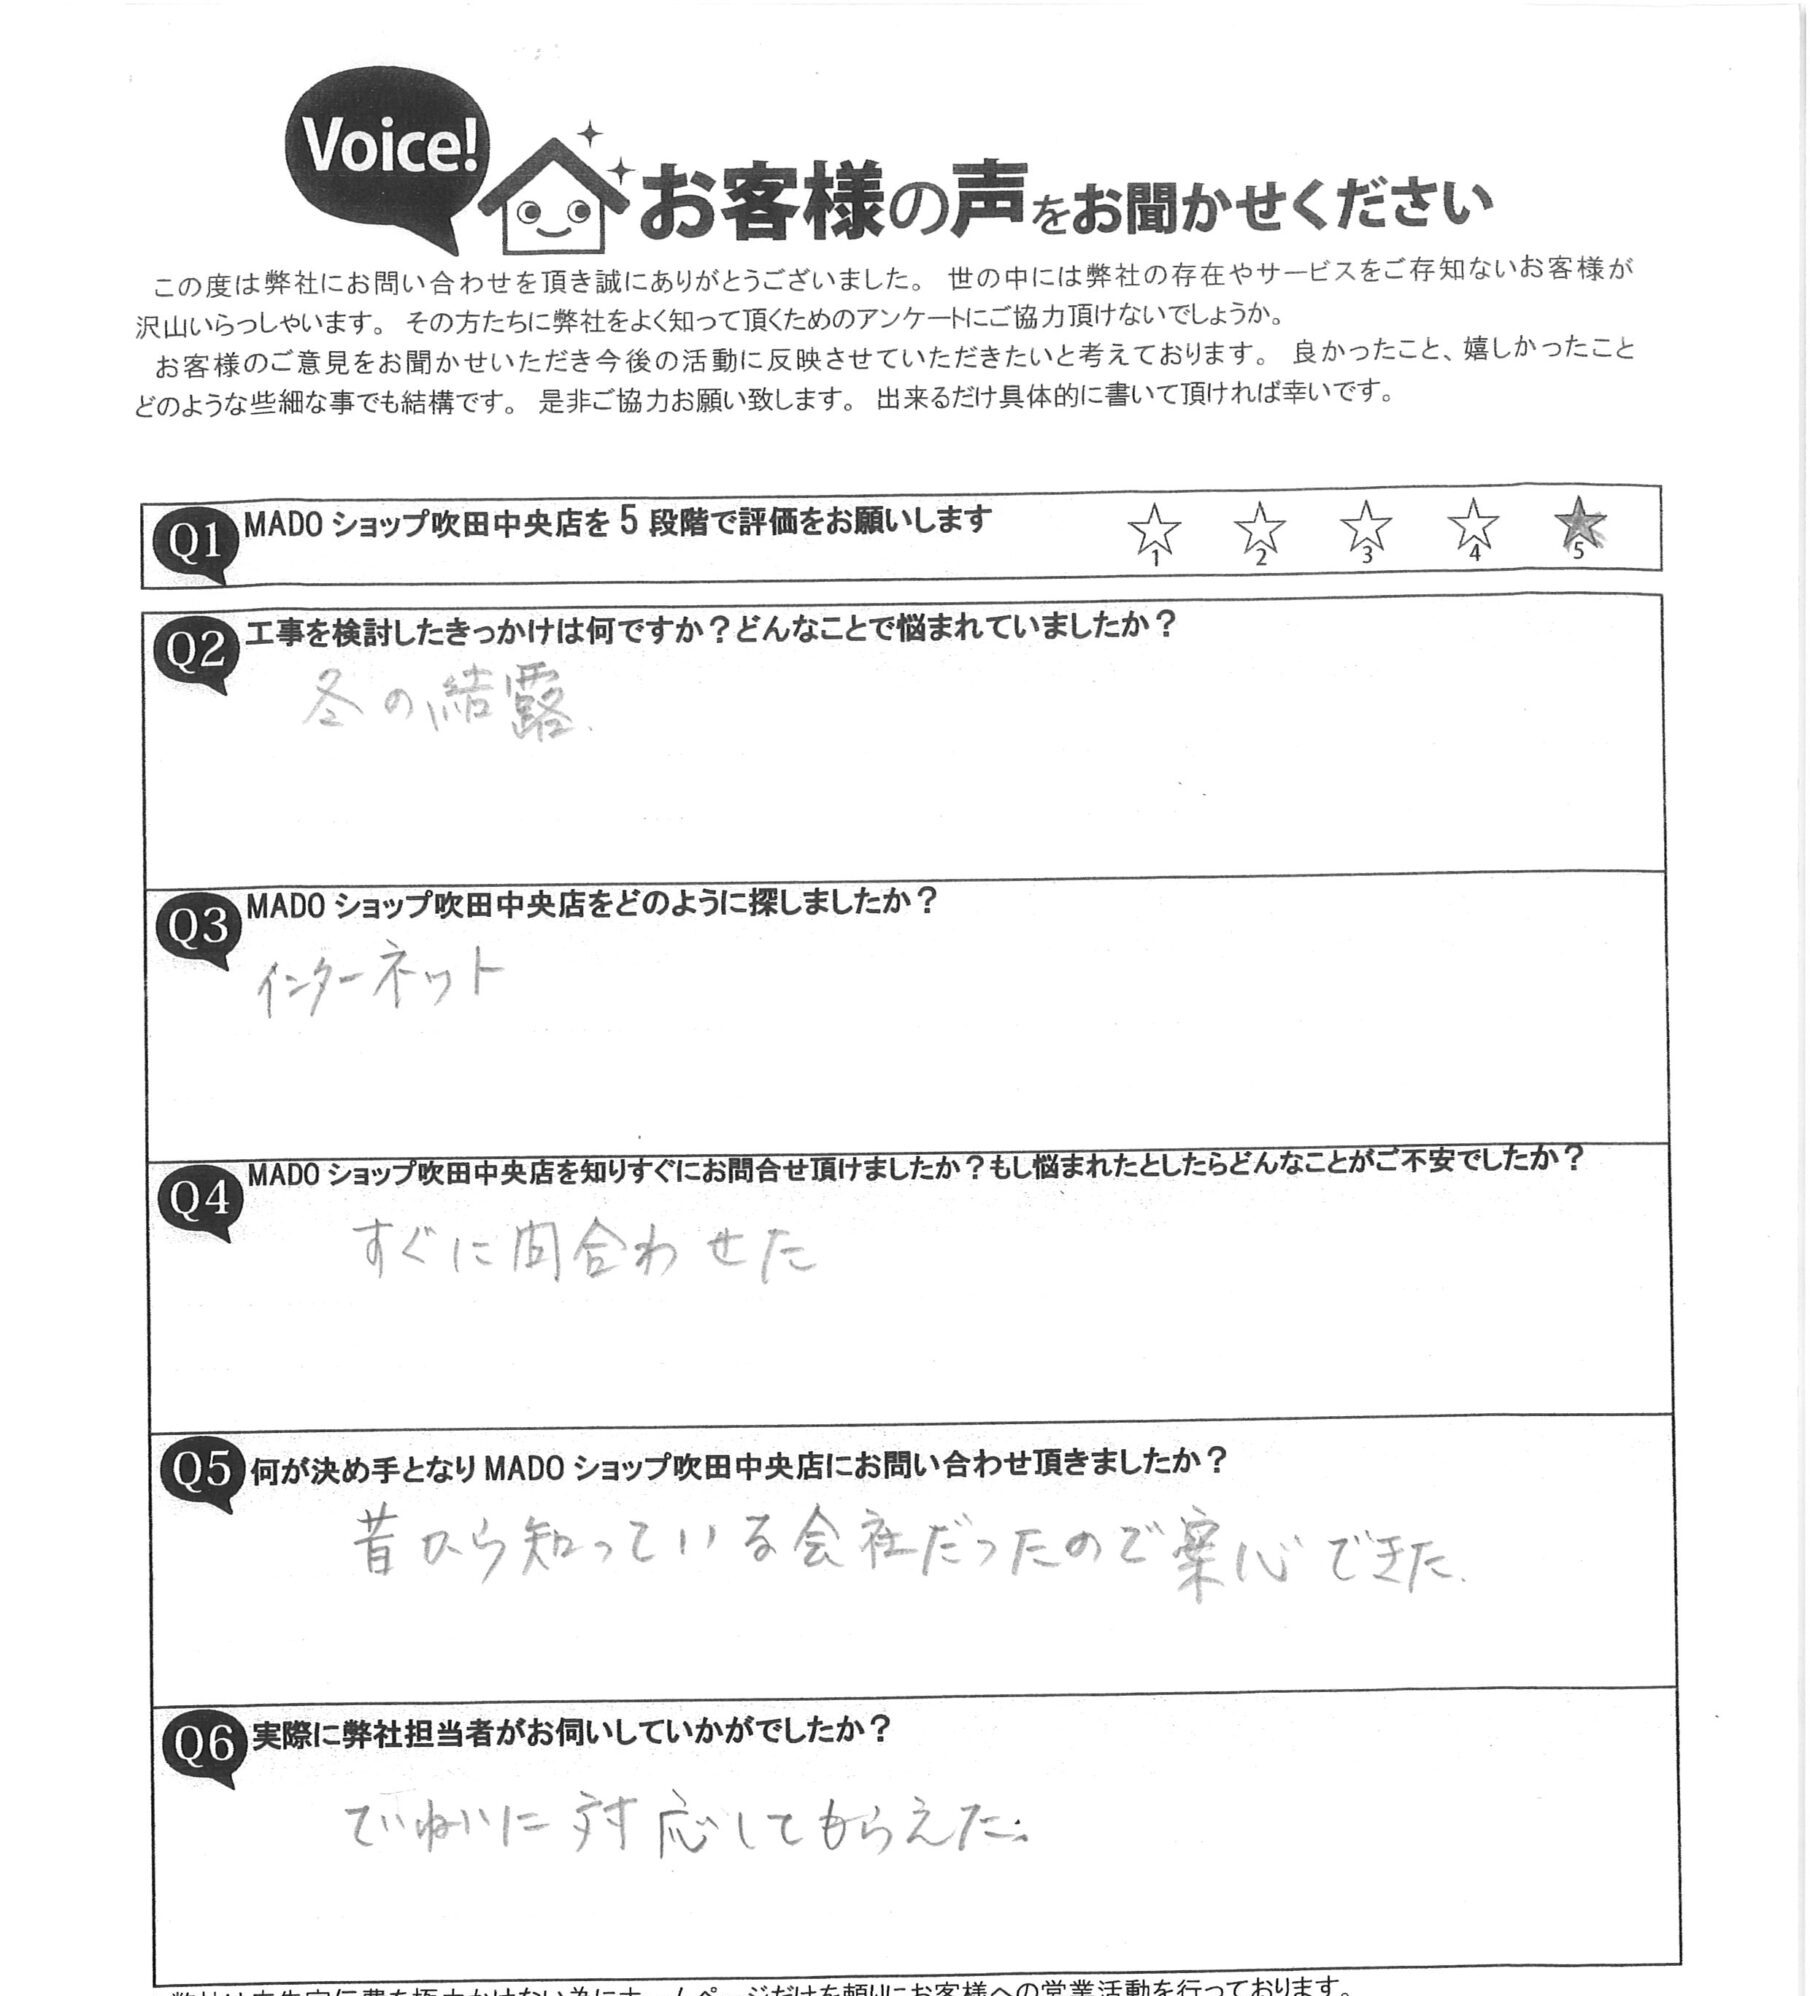 Voice!
お客様の声をお聞かせください
この度は弊社にお問い合わせを頂き誠にありがとうございました。 世の中には弊社の存在やサービスをご存知ないお客様が
沢山いらっしゃいます。 その方たちに弊社をよく知って頂くためのアンケートにご協力頂けないでしょうか。
お客様のご意見をお聞かせいただき今後の活動に反映させていただきたいと考えております。 良かったこと、嬉しかったこと
どのような些細な事でも結構です。 是非ご協力お願い致します。 出来るだけ具体的に書いて頂ければ幸いです。
Q1 MADO ショップ吹田中央店を 5 段階で評価をお願いします ☆1 ☆2 ☆3 ☆4 ★5
Q2 工事を検討したきっかけは何ですか？どんなことで悩まれていましたか？
冬の結露.
Q3 MADO ショップ吹田中央店をどのように探しましたか？
インターネット
Q4 MADO ショップ吹田中央店を知りすぐにお問合せ頂けましたか？もし悩まれたとしたらどんなことがご不安でしたか？
すぐに問合わせた
Q5 何が決め手となり MADO ショップ吹田中央店にお問い合わせ頂きましたか？
昔から知っている会社だったので案心できた.
Q6 実際に弊社担当者がお伺いしていかがでしたか？
ていねいに対応してもらえた.
弊社は広告宣伝費を極力かけない為にホームページだけを頼りにお客様への営業活動を行っております。